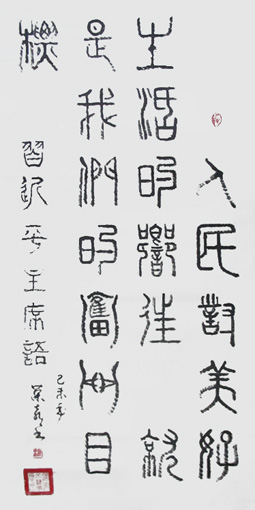 人民對美好
生活的嚮往就
是我們的奮鬥目
標
習近平主席語